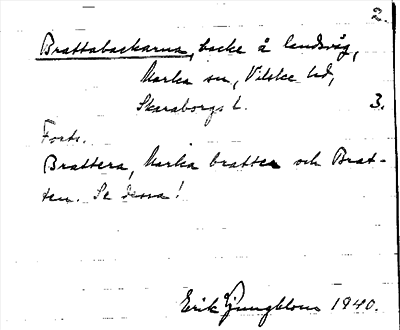 2.
Brattabackarna, backe å landsväg,
Marka sn, Vilske hd,
Skaraborgs l. 3.
Forts.
Brattera, Marka bratter och Brat-
ten. Se dessa!
Erik Ljungblom 1940.